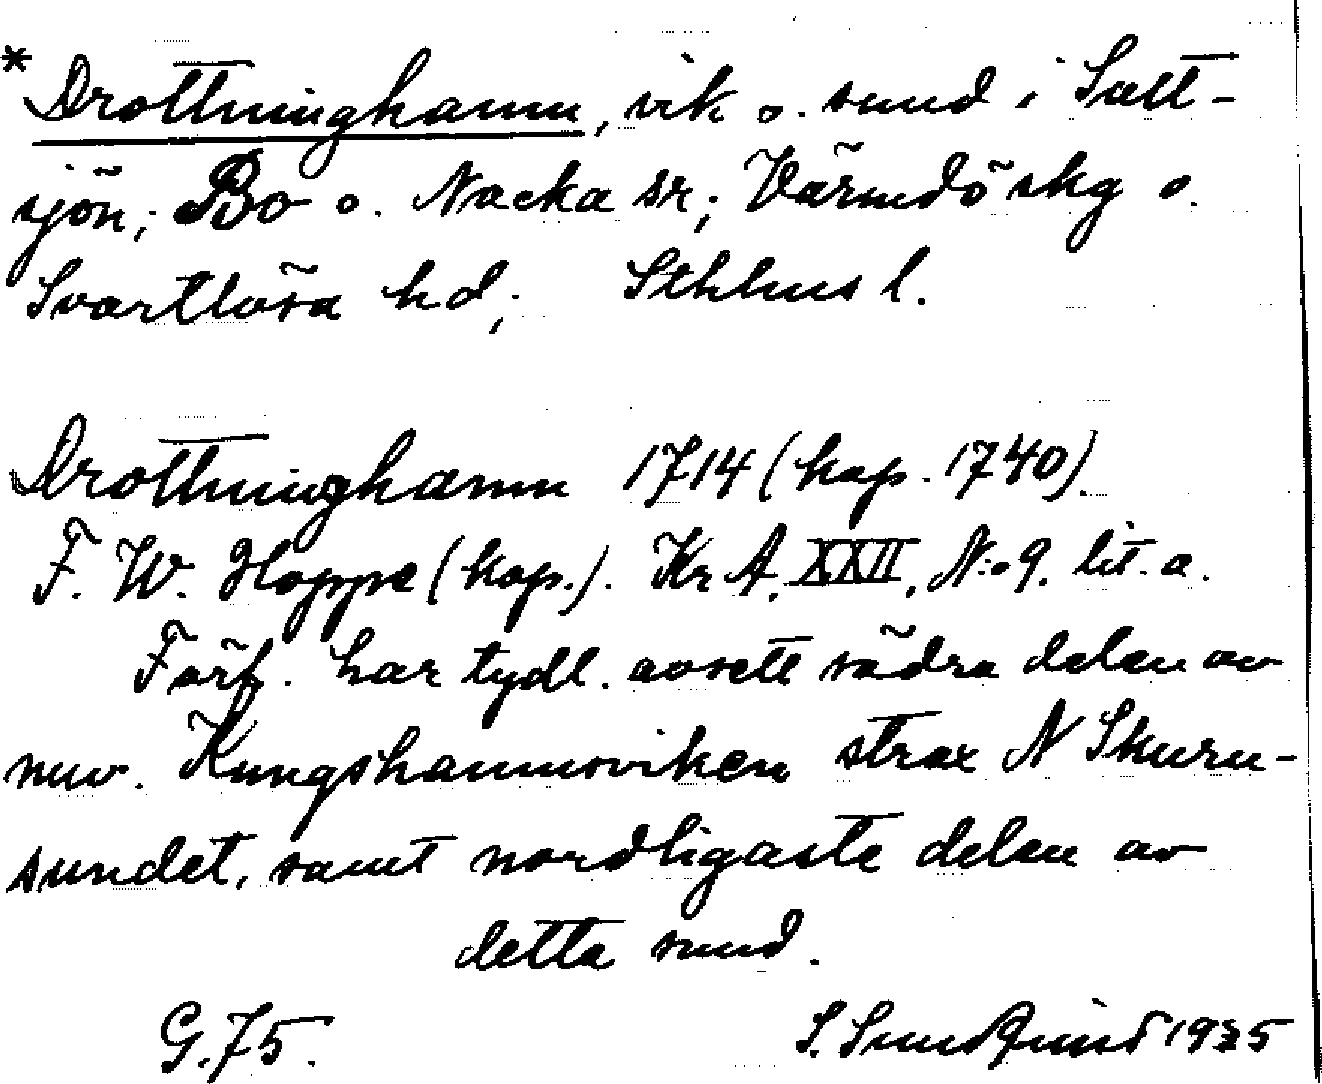 * Drottninghamn, vik o. sund i Salt-
sjön; Bo o. Nacka sr; Värmdö skg o.
Svartlösa hd; Sthlms l.
Drottninghamn 1714 (kop. 1740).
F. W. Hoppe (kop.). Kr A. XXII, N:o 9. lit. a.
Förf. har tydl. avsett södra delen av
nuv. Kungshamnsviken strax N Skuru-
sundet, samt nordligaste delen av
detta sund.
G. 75. S. Sundquist 1935